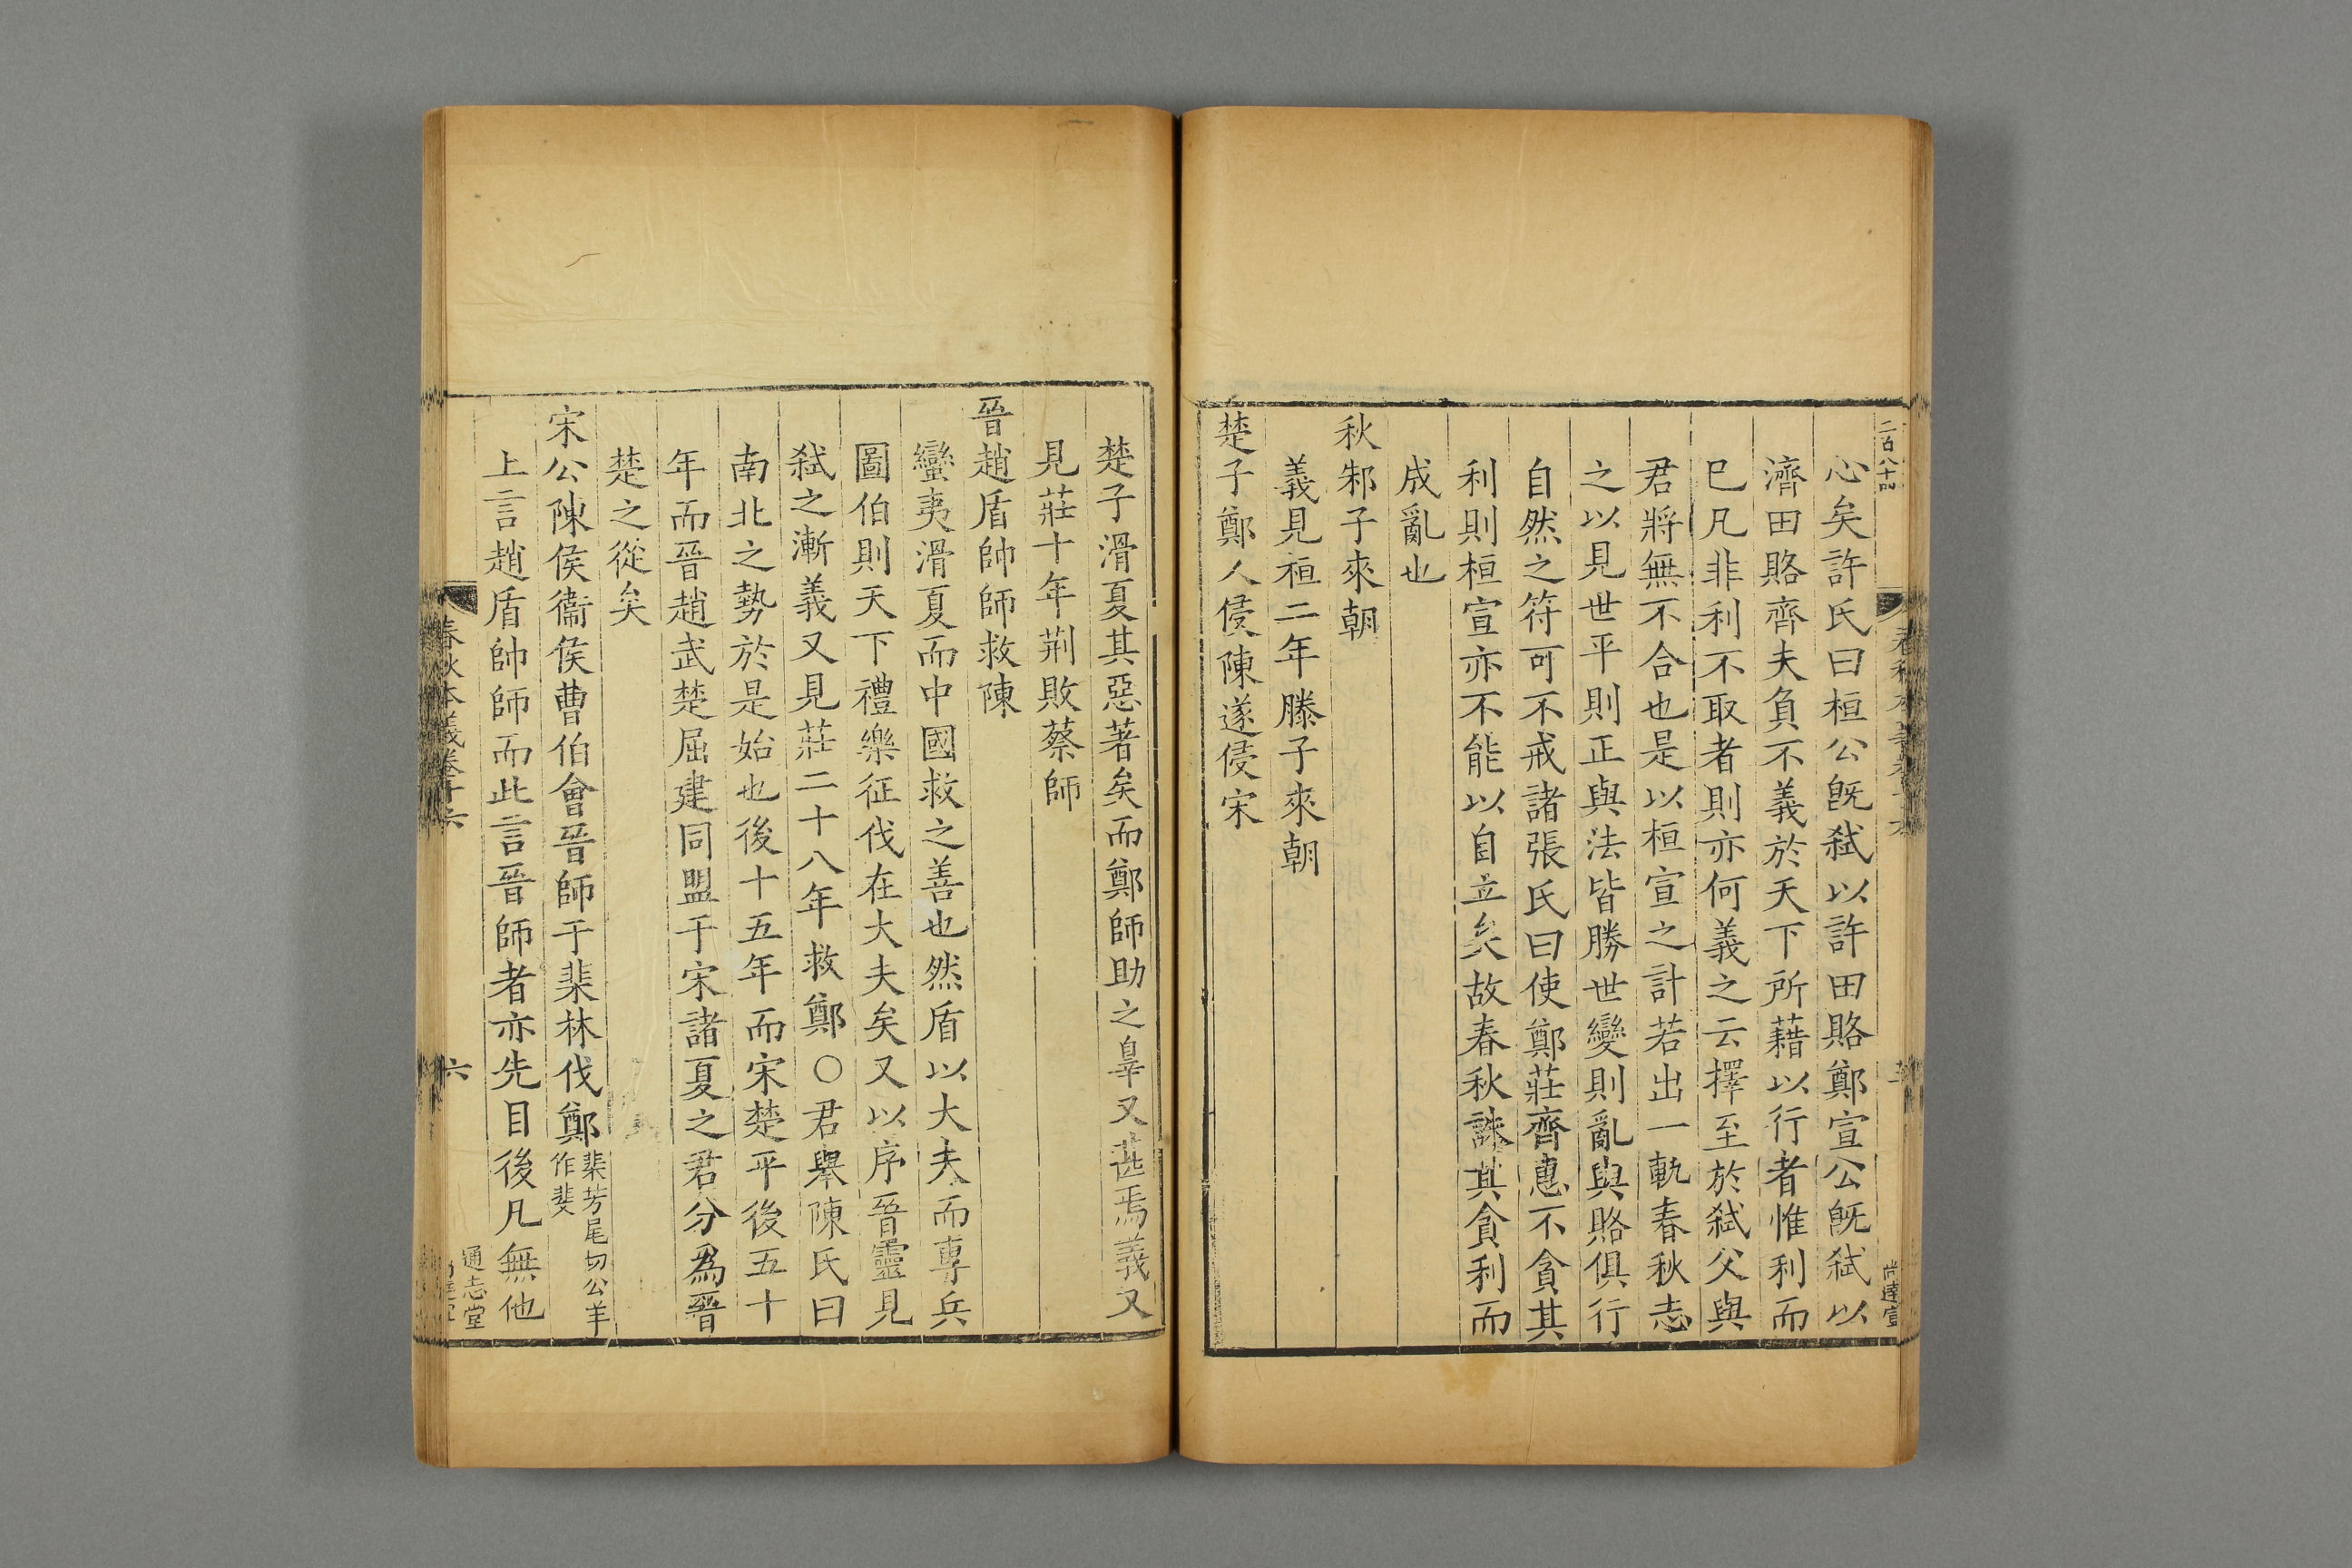 二百八十四
春秋本義卷十六
尚達宣
心矣許氏曰桓公旣弑以許田賂鄭宣公旣弑以
濟田賂齊夫負不義於天下所藉以行者惟利而
已凡非利不取者則亦何義之云擇至於弑父與
君將無不合也是以桓宣之計若出一軌春秋志
之以見世平則正與法皆勝世變則亂與賂俱行
自然之符可不戒諸張氏曰使鄭莊齊惠不貪其
利則桓宣亦不能以自立矣故春秋誅其貪利而
成亂也
秋邾子來朝
義見桓二年滕子來朝
楚子鄭人侵陳遂侵宋
楚子滑夏其惡著矣而鄭師助之辠又甚焉義又
見莊十年荆敗蔡師
晉趙盾帥師救陳
蠻夷滑夏而中國救之善也然盾以大夫而專兵
圖伯則天下禮樂征伐在大夫矣又以序晉靈見
弑之漸義又見莊二十八年救鄭○君舉陳氏曰
南北之勢於是始也後十五年而宋楚平後五十
年而晉趙武楚屈建同盟于宋諸夏之君分爲晉
楚之從矣
宋公陳侯衞侯曹伯會晉師于棐林伐鄭棐芳尾切公羊
作斐
上言趙盾帥師而此言晉師者亦先目後凡無他
春秋本義卷十六
六
通志堂